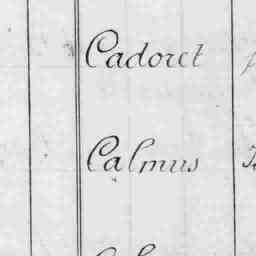 Cadoret
Calmus